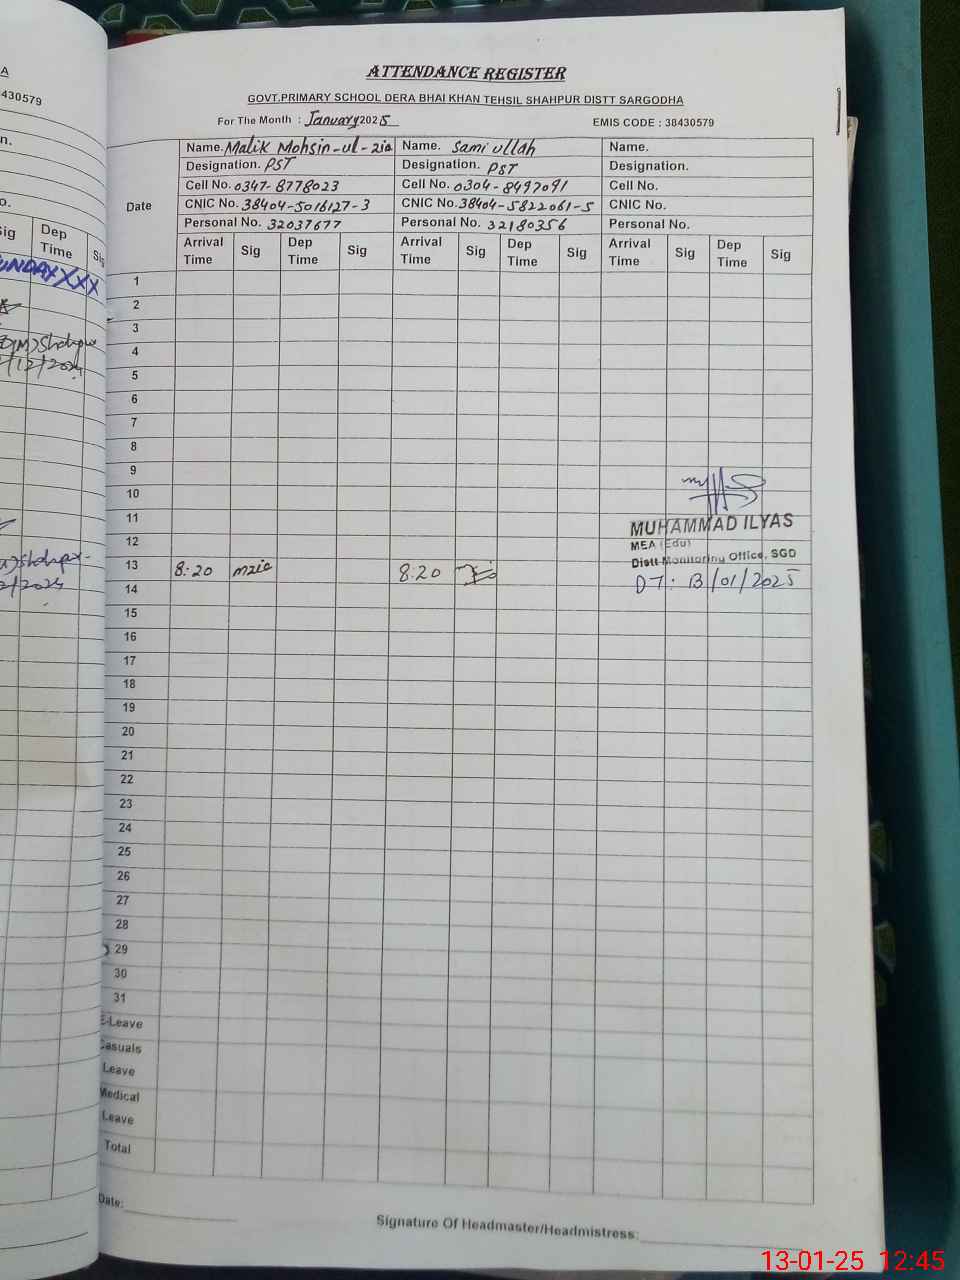 ATTENDANCE REGISTER
GOVT.PRIMARY SCHOOL DERA BHAI KHAN TEHSIL SHAHPUR DISTT SARGODHA
For The Month : January 2025 EMIS CODE : 38430579
Date
Name. Malik Mohsin-ul-zia Name. Sami ullah Name.
Designation. PST Designation. PST Designation.
Cell No. 0347-8778023 Cell No. 0304-8497091 Cell No.
CNIC No. 38404-5016127-3 CNIC No. 38404-5822061-5 CNIC No.
Personal No. 32037677 Personal No. 32180356 Personal No.
Arrival Time Sig Dep Time Sig Arrival Time Sig Dep Time Sig Arrival Time Sig Dep Time Sig
1
2
3
4
5
6
7
8
9
10
11
MUHAMMAD ILYAS
12
MEA (Edu)
Distt Monitoring Office, SGD
13 8:20 mzia 8:20
DT: 13/01/2025
14
15
16
17
18
19
20
21
22
23
24
25
26
27
28
29
30
31
E-Leave
Casuals
Leave
Medical
Leave
Total
Date:
Signature Of Headmaster/Headmistress:
A
430579
n.
o.
Sig Dep Time Sig
UNDAY XXX
Shahpur
/12/2024
Shahpur
2/2024
13-01-25 12:45